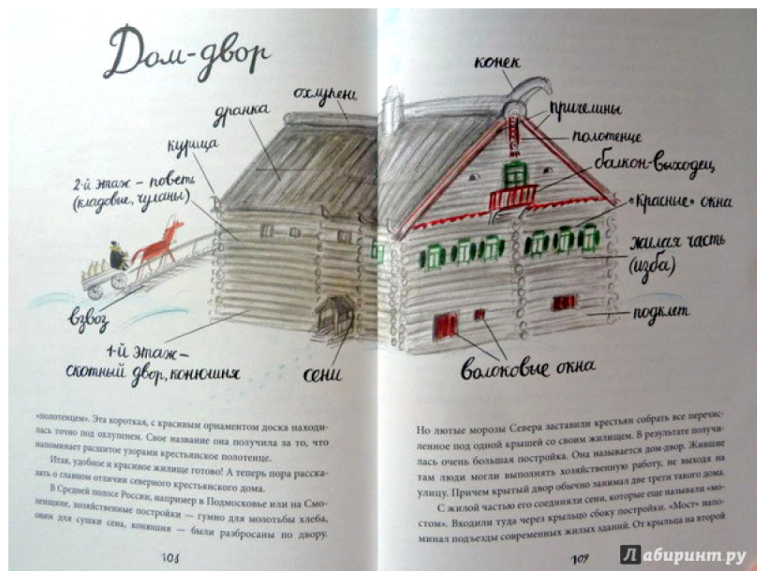 Дом-двор
охлупень
дранка
курица
2-й этаж – повети
(кладовые, чуланы)
взвоз
1-й этаж –
скотный двор, конюшня
сени
конек
причелины
полотенце
балкон-выходец
«красные» окна
жилая часть
(изба)
подклет
волоковые окна
«полотенцем». Эта короткая, с красивым орнаментом доска находи-
лась точно под охлупенем. Свое название она получила за то, что
напоминает расшитое узорами крестьянское полотенце.
Итак, удобное и красивое жилище готово! А теперь пора расска-
зать о главном отличии северного крестьянского дома.
В Средней полосе России, например в Подмосковье или на Смо-
ленщине, хозяйственные постройки — гумно для молотьбы хлеба,
овин для сушки сена, конюшня — были разбросаны по двору.
108
Но лютые морозы Севера заставили крестьян собрать все перечис-
ленное под одной крышей со своим жилищем. В результате получи-
лась очень большая постройка. Она называется дом-двор. Жившие
там люди могли выполнять хозяйственную работу, не выходя на
улицу. Причем крытый двор обычно занимал две трети такого дома.
С жилой частью его соединяли сени, которые еще называли «мо-
стом». Входили туда через крыльцо сбоку постройки. «Мост» напо-
минал подъезды современных жилых зданий. От крыльца на второй
109
Лабиринт.ру